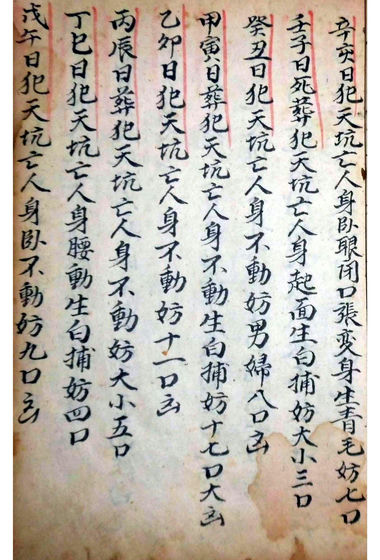 辛亥日犯天坑亡人身卧眼闭口張变身生青毛妨七口
壬子日死葬犯天坑亡人身起面生白捕妨大小三口
癸丑日犯天坑亡人身不動妨男婦八口凶
甲寅日葬犯天坑亡人身不動生白捕妨十七口大凶
乙卯日犯天坑亡人身不動妨十一口凶
丙辰日葬犯天坑亡人身不動妨大小五口
丁巳日犯天坑亡人身腰動生白捕妨四口
戊午日犯天坑亡人身卧不動妨九口凶